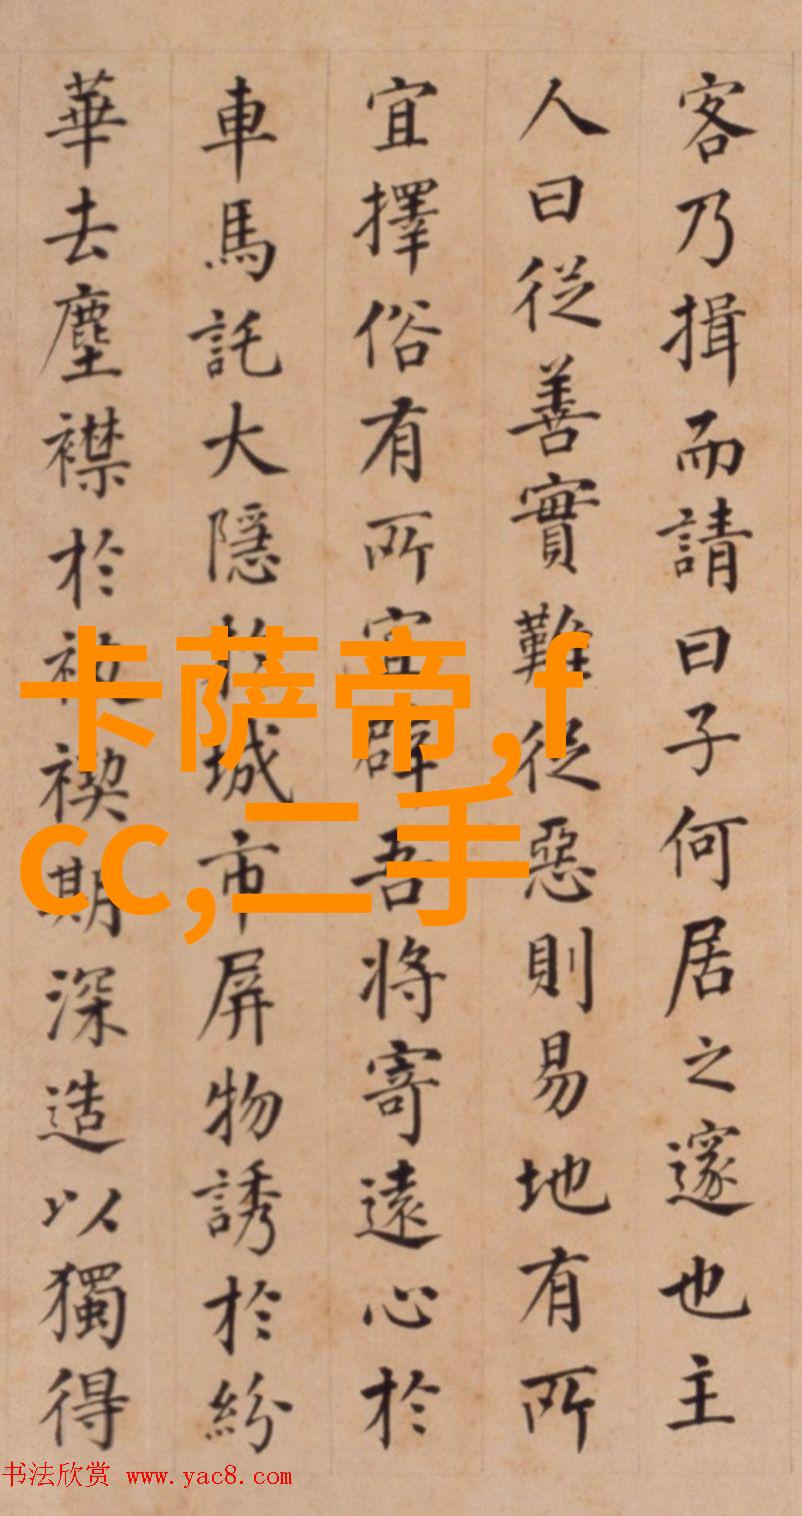 客乃揖而請曰子何居之邃也主
人曰從善實難從惡則易地有所
宜擇俗有所宜辟吾將寄遠心於
車馬託大隱於城市屏物誘於紛
華去塵襟於祓禊期深造以獨得
卡萨帝,f
cc,二手
书法欣赏 www.yac8.com